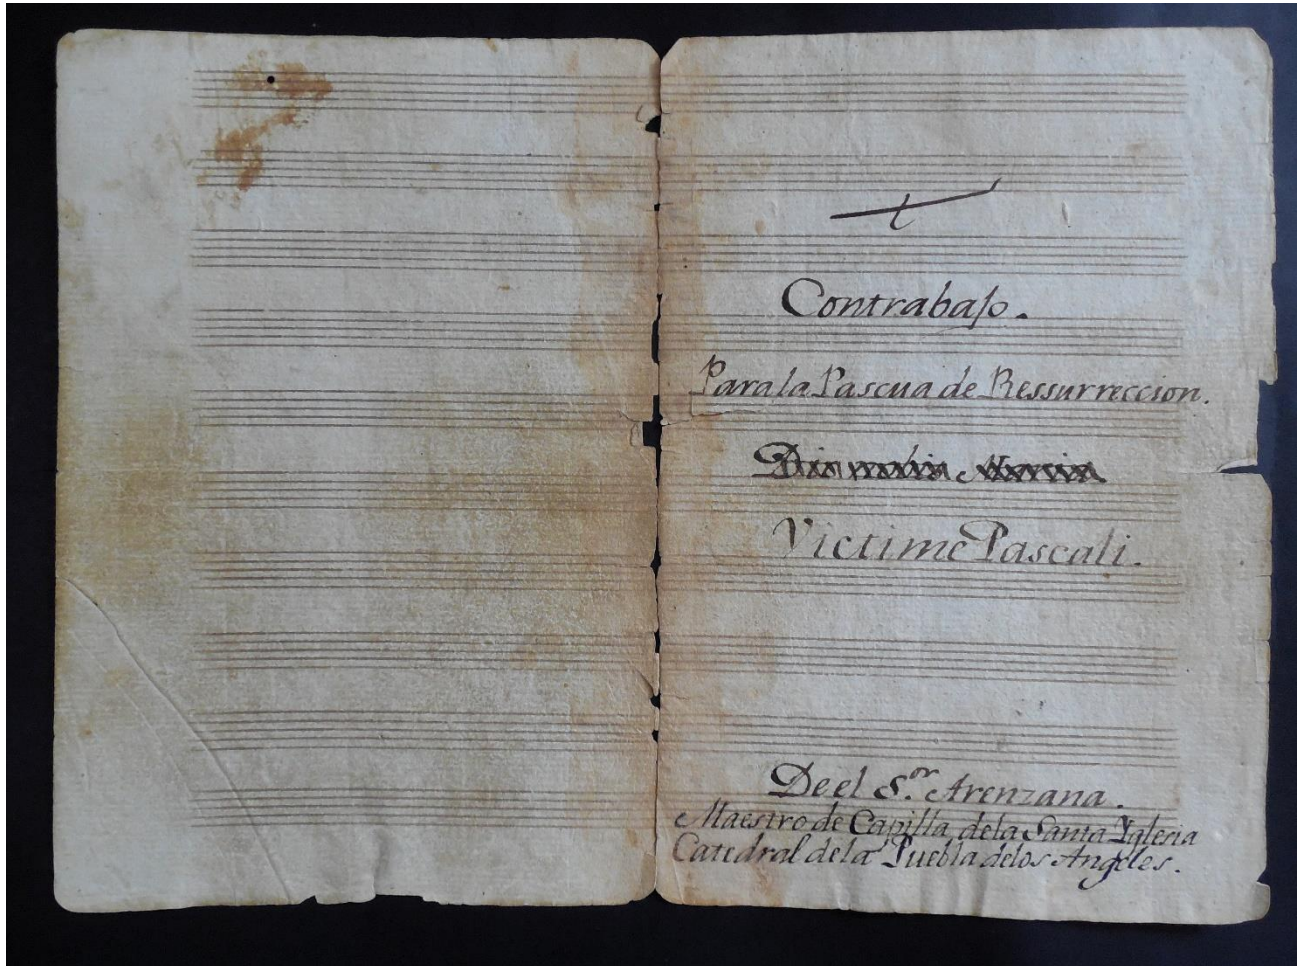 Contrabajo.
Para la Pascua de Ressurreccion.
Victime Pascali.
De el S.or Arenzana.
Maestro de Capilla de la Santa Yglesia
Catedral de la Puebla de los Angeles.